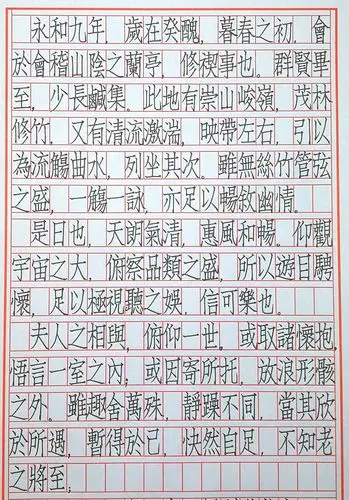 永和九年，歲在癸醜，暮春之初，會
於會稽山陰之蘭亭，修禊事也。群賢畢
至，少長鹹集。此地有崇山峻嶺，茂林
修竹，又有清流激湍，映帶左右，引以
為流觴曲水，列坐其次。雖無絲竹管弦
之盛，一觴一詠，亦足以暢敘幽情。
是日也，天朗氣清，惠風和暢。仰觀
宇宙之大，俯察品類之盛，所以遊目騁
懷，足以極視聽之娛，信可樂也。
夫人之相與，俯仰一世。或取諸懷抱，
悟言一室之內；或因寄所托，放浪形骸
之外。雖趣舍萬殊，靜躁不同，當其欣
於所遇，暫得於己，快然自足，不知老
之將至；